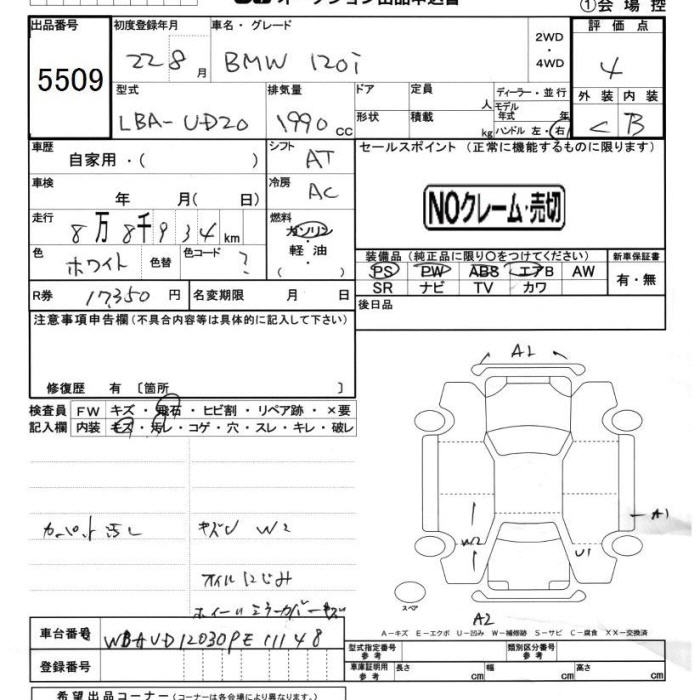 オークション出品申込書
①会場控
出品番号 初度登録年月 車名・グレード 評価点
5509 22 8月 BMW 120i 2WD・4WD 4
型式 排気量 ドア 定員 人 ディーラー・並行 外装 内装
LBA-UD20 1990cc 形状 積載 kg モデル年式 年 ハンドル 左・右 C B
車歴 自家用・( ) シフト AT セールスポイント (正常に機能するものに限ります)
車検 年 月( 日) 冷房 AC
NOクレーム・売切
走行 8万8千934km 燃料 ガソリン・軽油 ( )
色 ホワイト 色替 色コード ?
装備品 (純正品に限り○をつけてください) 新車保証書
PS PW ABS エアB AW 有・無
SR ナビ TV カワ
R券 17,350円 名変期限 月 日 後日品
注意事項申告欄(不具合内容等は具体的に記入して下さい)
修復歴 有 [箇所 ]
検査員 FW キズ・飛石・ヒビ割・リペア跡・×要
記入欄 内装 キズ・汚レ・コゲ・穴・スレ・キレ・破レ
A2
カーペット汚レ キズU W2
オイルにじみ
A1
W2 U1
スペア
A2
A-キズ E-エクボ U-凹み W-補修跡 S-サビ C-腐食 XX-交換済
車台番号 WBAUD12030PE11148
登録番号
型式指定番号 参考 類別区分番号 参考
車庫証明用 参考 長さ cm 幅 cm 高さ cm
希望出品コーナー (コーナーは各会場により異なります。)